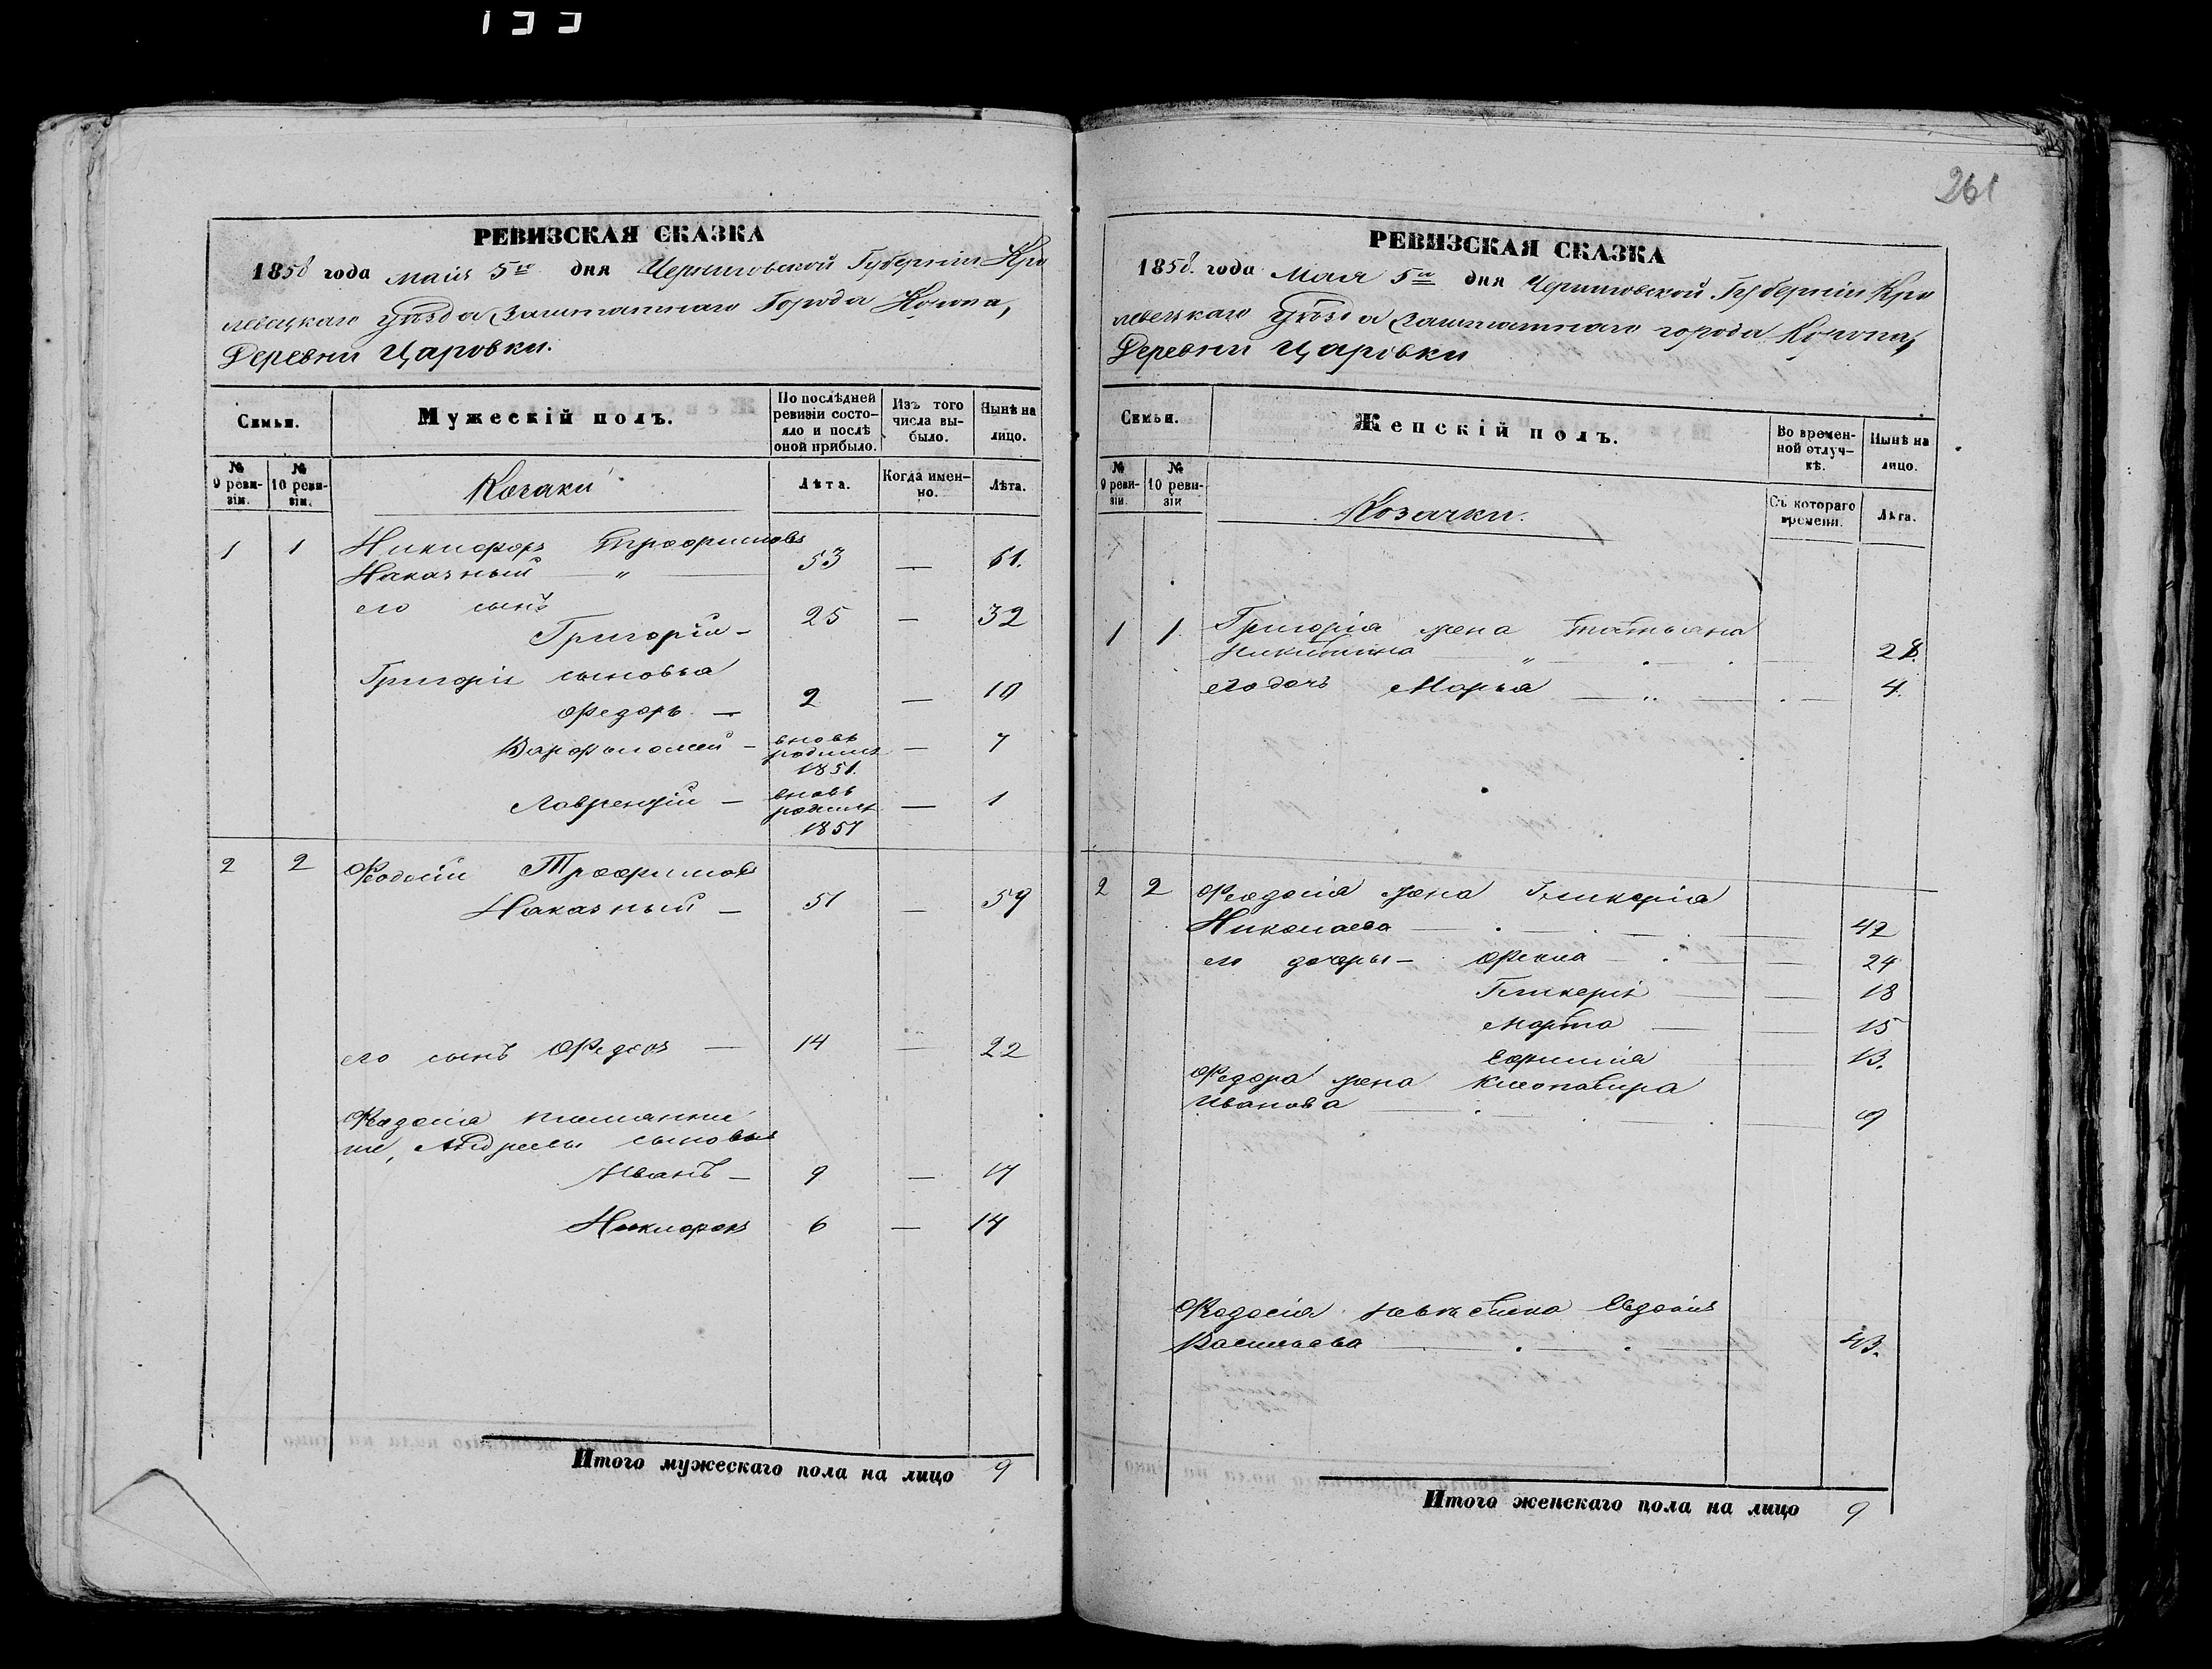 133
РЕВИЗСКАЯ СКАЗКА
1858 года маія 5го дня Черниговской Губерніи Кро
левецкаго уѣзда Заштатнаго Города Коропа,
Деревни Царовки.
Семьи.
Мужескій полъ.
По послѣдней ревизіи состояло и послѣ оной прибыло.
Изъ того числа выбыло.
Нынѣ на лицо.
№ 9 ревизіи.
№ 10 ревизіи.
Козаки
Лѣта.
Когда именно.
Лѣта.
1 1 Никифоръ Трофимовъ
Наказный — „ — 53 — 61.
его сынъ
Григорій — 25 — 32
Григорія сыновья
Федоръ — 2 — 10
Варфоломей — вновь родился 1851. — 7
Лаврентій — вновь родился 1857 — 1
2 2 Феодосій Трофимовъ
Наказный — 51 — 59
его сынъ Федоръ — 14 — 22
Феодосія племянни
ки, Андреевы сыновья
Иванъ — 9 — 17
Никифоръ 6 — 14
Итого мужескаго пола на лицо 9
261
РЕВИЗСКАЯ СКАЗКА
1858. года Мая 5го дня Черниговской Губерніи Кро
левецкаго Уѣзда Заштатнаго города Коропа,
Деревни Царівки
Семьи.
Женскій полъ.
Во временной отлучкѣ.
Нынѣ на лицо.
№ 9 ревизіи.
№ 10 ревизіи
Козачки.
Съ котораго времени.
Лѣта.
1 1. Григорія жена Татьяна
Никитина — „ — 28.
его дочь Марья — „ — 4.
2 2 Феодосія жена Гликерія
Николаева — 42
его дочеры — Фекла — 24
Гликерія — 18
Марта — 15
Ефимія — 13.
Федора жена Клеопатра
Иванова — 19
Феодосія невѣстка Евдокія
Васильева — 43.
Итого женскаго пола на лицо 9